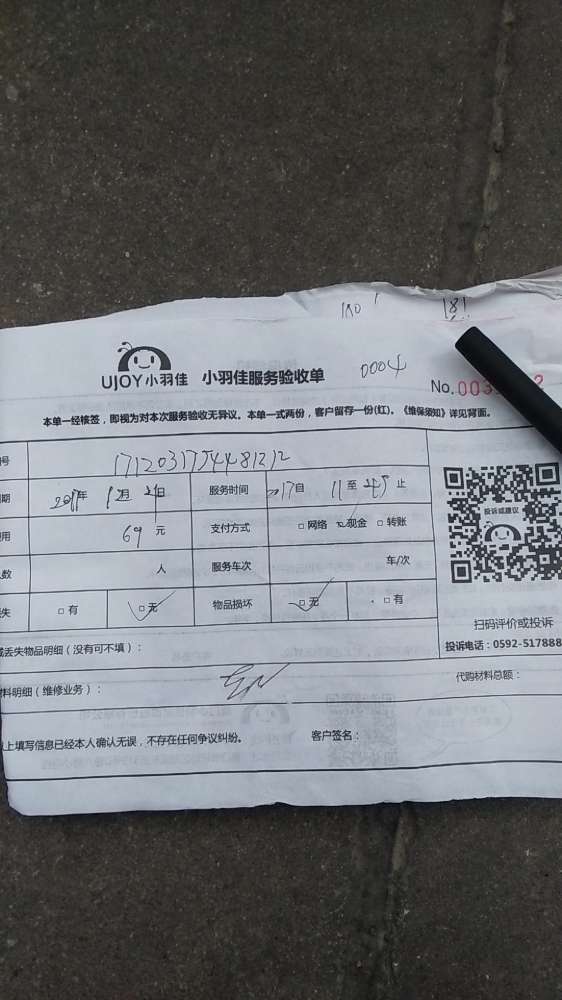 181
UJOY小羽佳 小羽佳服务验收单 0004
No.003
本单一经核签，即视为对本次服务验收无异议。本单一式两份，客户留存一份(红)。《维保须知》详见背面。
号 17120317544481212
期 2017年 12月 日 服务时间 自 止
投诉或建议
用 69 元 支付方式 □网络 □现金 □转账
数 人 服务车次 车/次
失 □有 □无 物品损坏 □无 □有
扫码评价或投诉
投诉电话：0592-517888
或丢失物品明细（没有可不填）：
料明细（维修业务）： 代购材料总额：
上填写信息已经本人确认无误，不存在任何争议纠纷。 客户签名：